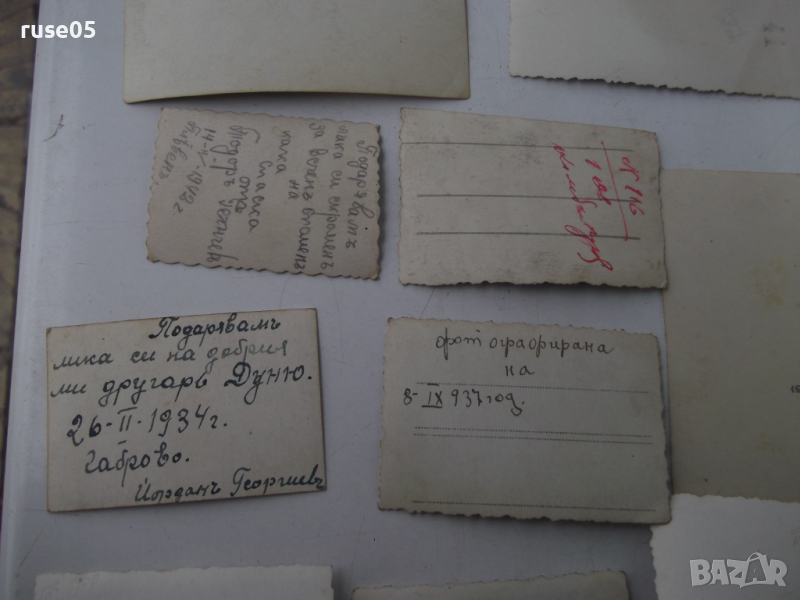 ruse05
Подарявамъ
лика си скроменъ
за веченъ споменъ
на
кака
Спаска
отъ
Тодоръ
14-II-1942 г
Плѣвенъ
№ 116
1
Подарявамъ
лика си на добрия
ми другарь Дуню.
26-II-1934 г.
Габрово.
Йорданъ Георгиевъ
фотографирана
на
8-IX 937 год.
BAZAR